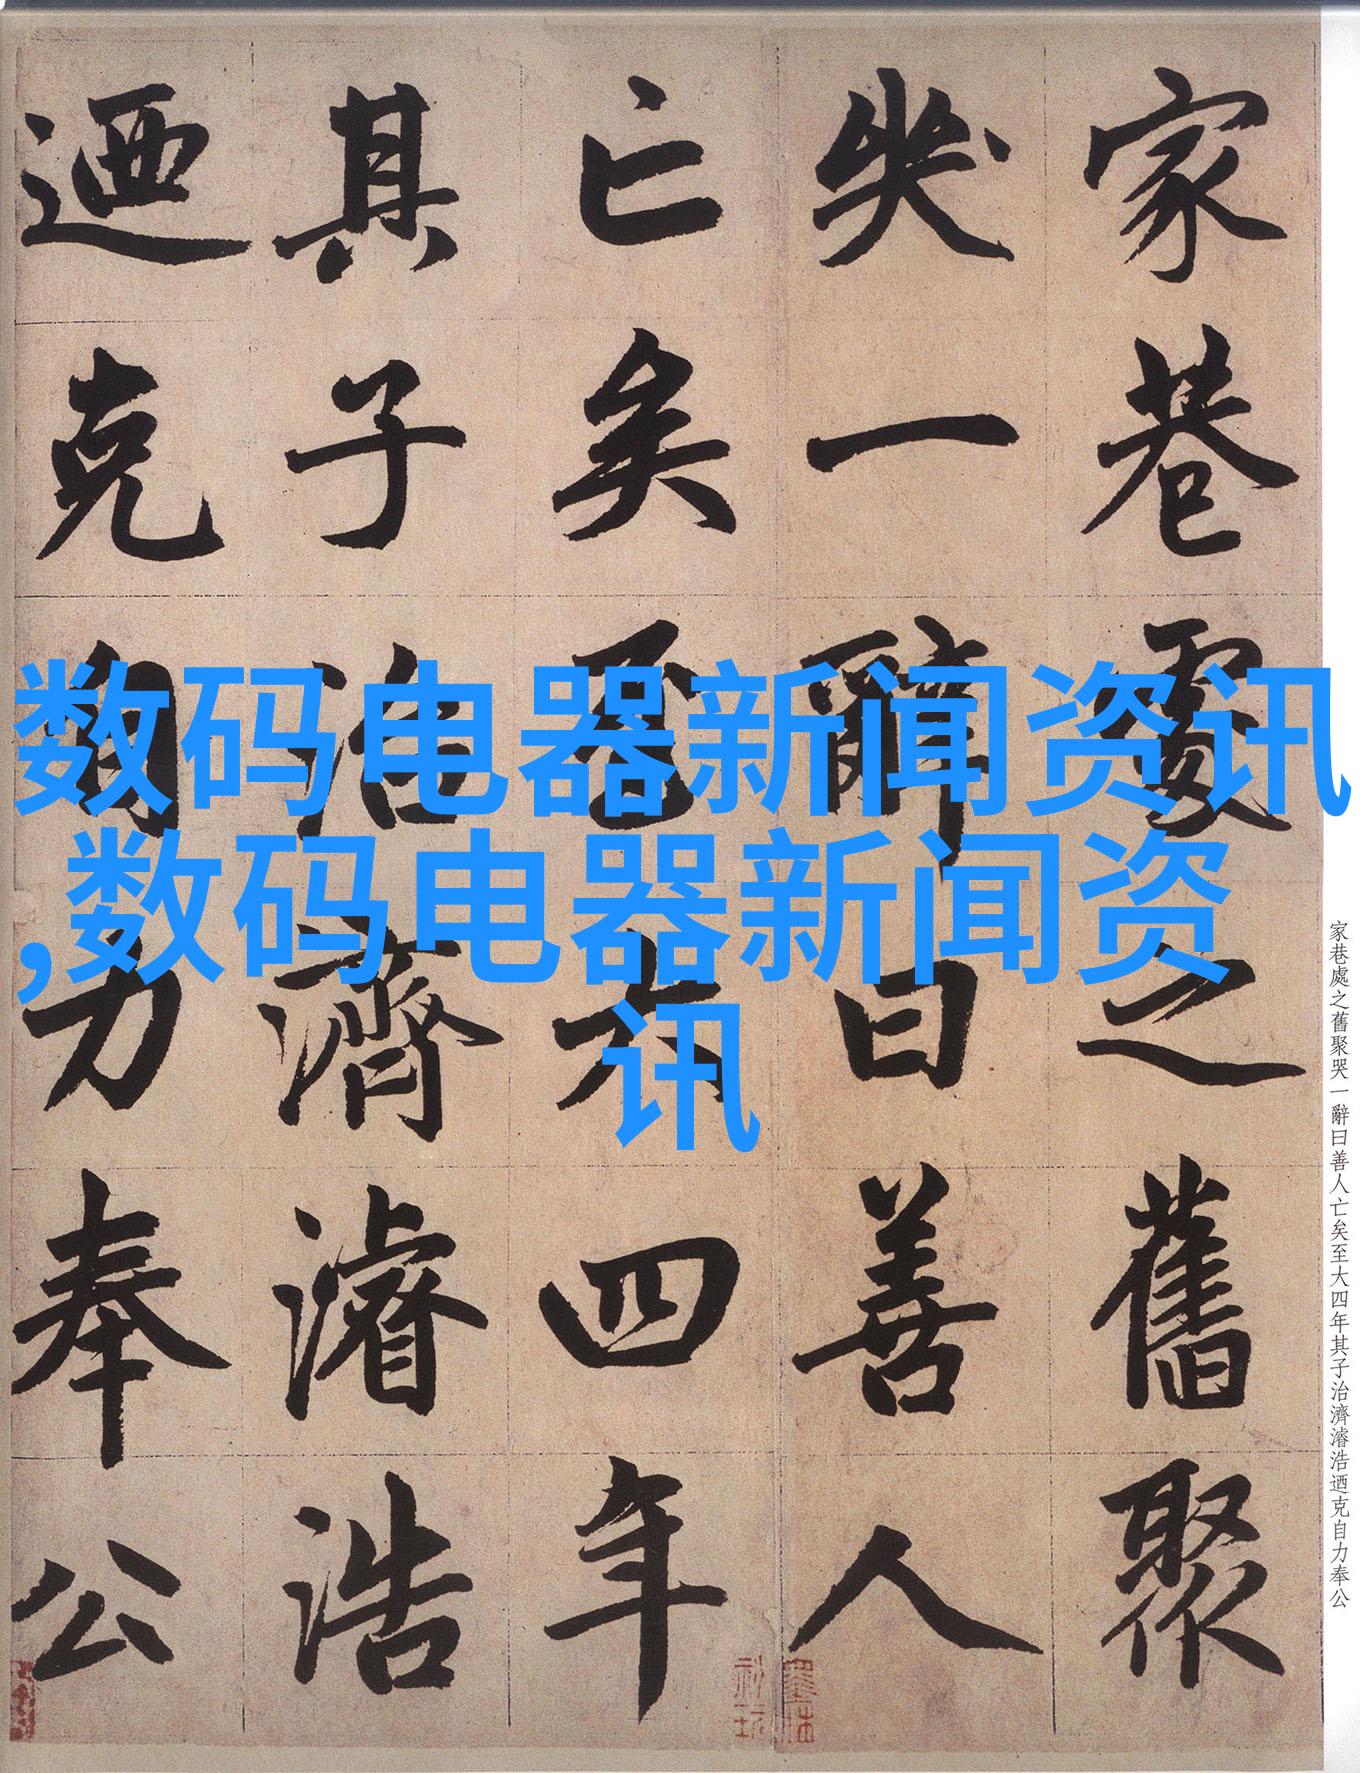 家巷處之舊聚
哭一辭曰善人
亡矣至大四年
其子治濟濬浩
迺克自力奉公
数码电器新闻资讯
,数码电器新闻资
讯
家巷處之舊聚哭一辭曰善人亡矣至大四年其子治濟濬浩迺克自力奉公